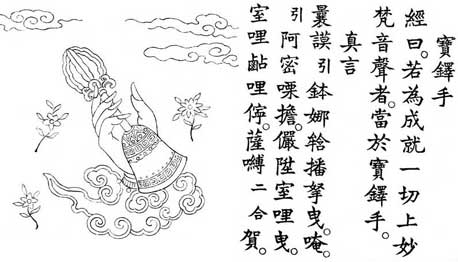 寶鐸手
經曰。若為成就一切上妙
梵音聲者。當於寶鐸手。
真言
曩謨引鉢娜𤚥播拏曳。唵
引阿密㗚擔。儼陛室哩曳。
室哩哩儜。薩嚩二合賀。